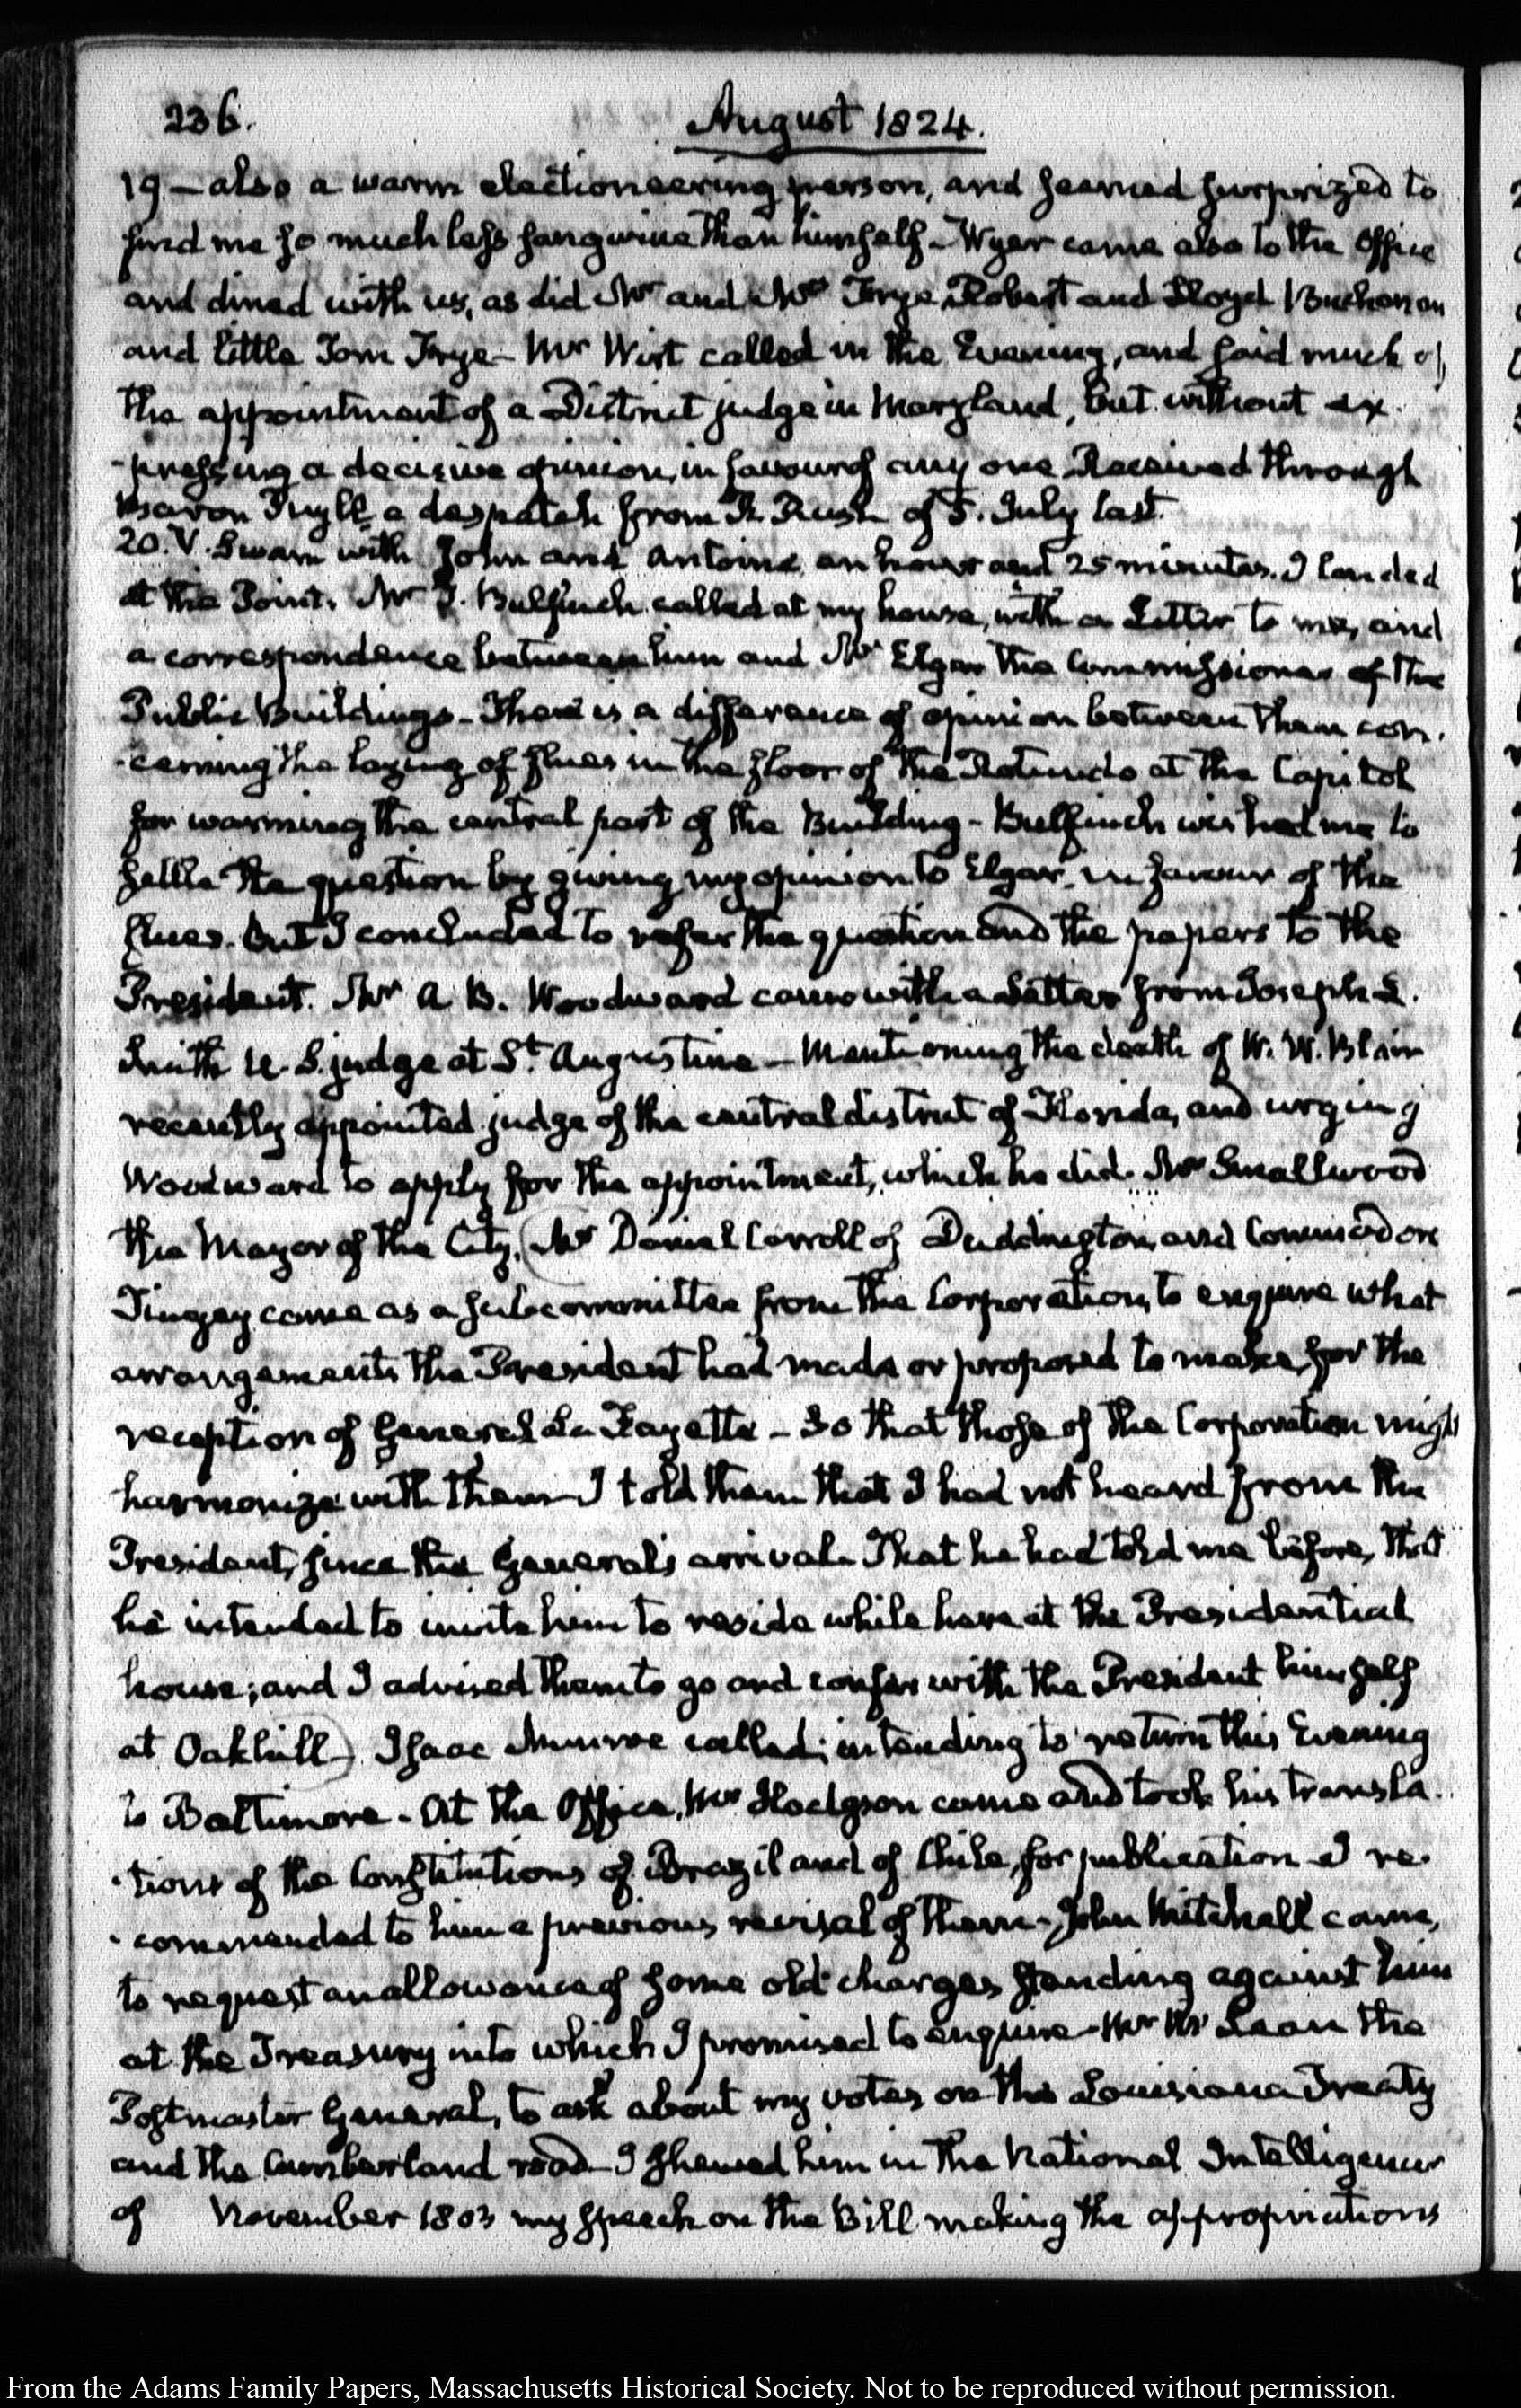 236.
August 1824.
19 - also a warm electioneering person, and seemed surprized to
find me so much less sanguine than himself - Wyer came also to the Office
and dined with us, as did Mr and Mrs Frye, Robert and Lloyd Buchanan
and little Tom Frye - Mr Wirt called in the Evening, and said much of
the appointment of a District judge in Maryland, but without ex-
-pressing a decisive opinion, in favour of any one Received through
Baron Tuyll a despatch from R. Rush of 5. July last.
20. V. Swam with John and Antoine, an hour and 25 minutes. I landed
at the Point. Mr Bulfinch called at my house, with a Letter to me, and
a correspondence between him and Mr Elgar the Commissioner of the
Public Buildings - There is a difference of opinion between them con-
-cerning the laying of flues in the floor of the Rotundo at the Capitol
for warming the central part of the Building - Bulfinch wished me to
settle the question by giving my opinion to Elgar, in favour of the
flues. But I concluded to refer the question and the papers to the
President. Mr A B. Woodward came with a Letter from Joseph L.
Smith U. S. judge at St. Augustine - Mentioning the death of W. W. Blair
recently appointed judge of the central district of Florida, and urging
Woodward to apply for the appointment, which he did. Mr Smallwood
the Mayor of the City, (Mr Daniel Carroll of Duddington, and Commodore
Tingey came as a subcommittee from the Corporation, to enquire what
arrangements the President had made or proposed to make, for the
reception of General La Fayette - So that those of the Corporation might
harmonize with them - I told them that I had not heard from the
President, since the General's arrival. That he had told me before, that
he intended to invite him to reside while here at the Presidential
house; and I advised them to go and confer with the President himself
at Oakhill). Isaac Munroe called; intending to return this Evening
to Baltimore - At the Office, Mr Hodgson came and took his transla-
-tions of the Constitutions of Brazil and of Chile, for publication - I re-
-commended to him a previous revisal of them - John Mitchell came,
to request an allowance of some old charges standing against him
at the Treasury into which I promised to enquire - Mr McLean the
Postmaster General, to ask about my votes on the Louisiana Treaty
and the Cumberland road - I shewed him in the National Intelligencer
of November 1803 my speech on the Bill making the appropriations
From the Adams Family Papers, Massachusetts Historical Society. Not to be reproduced without permission.